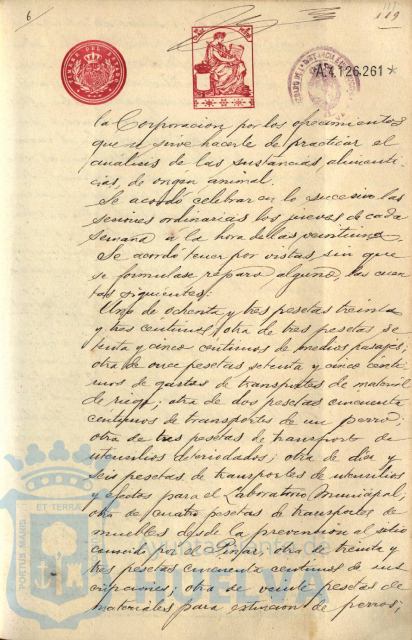 6
119
TIMBRE DEL ESTADO
A.4.126.261*
la Corporacion por los ofrecimientos
que se sirve hacerle de practicar el
análisis de las sustancias alimenti-
cias, de origen animal.
Se acordó celebrar en lo sucesivo las
sesiones ordinarias los jueves de cada
semana a la hora de las veintiuna.
Se acordó tener por vistas, sin que
se formulase reparo alguno, las cuen-
tas siguientes:
Una de ochenta y tres pesetas treinta
y tres centimos; otra de tres pesetas se-
tenta y cinco centimos de medios pasajes;
otra de once pesetas setenta y cinco centi-
mos de gastos de transportes de material
de riego; otra de dos pesetas cincuenta
centimos de transportes de un perro;
otra de tres pesetas de transporte de
utensilios deteriorados; otra de diez y
seis pesetas de transportes de utensilios
y efectos para el Laboratorio Municipal;
otra de cuatro pesetas de transportes de
muebles desde la prevencion al sitio
conocido por el Pinar; otra de treinta y
tres pesetas cincuenta centimos de sus-
cripciones; otra de veinte pesetas de
materiales para extincion de perros;
PORTUS MARIS
ET TERRAE
Ayuntamiento de
HUELVA